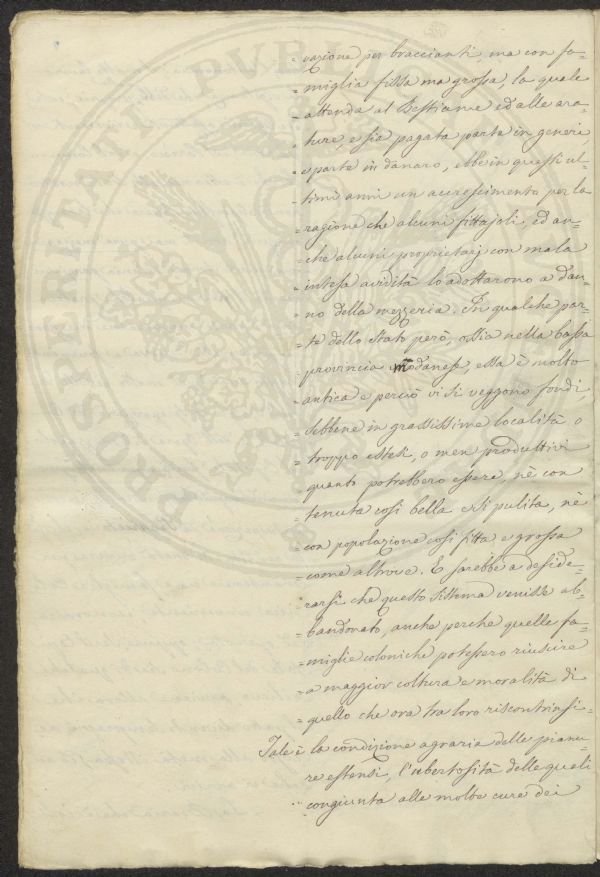 = vazione per braccianti, ma con fa=
= miglia fissa ma grossa, la quale
= attenda al Bestiame ed alle ara=
= ture, e sia pagata parte in generi,
= e parte in danaro, ebbe in questi ul=
= timi anni un accrescimento per la
= ragione che alcuni fittajoli, ed an=
= che alcuni proprietarj con mala
= intesa avidità lo adottarono a dan=
= no della mezzeria. In qualche par=
= te dello Stato però, ossia nella bassa
= provincia modanese, essa è molto
= antica e perciò vi si veggono fondi,
= sebbene in grassissime località, o
= troppo estesi, o men produttivi
= quanto potrebbero essere, nè con
= tenuta così bella e sì pulita, nè
= con popolazione così fitta e grossa
= come altrove. E sarebbe a deside=
= rarsi che questo sistema venisse ab=
= bandonato, anche perche quelle fa=
= miglie coloniche potessero riuscire
= a maggior coltura e moralità di
= quello che ora tra loro riscontrasi =
Tale è la condizione agraria delle pianu=
re estensi, l'ubertosità delle quali
congiunta alle molte cure dei
PROSPERITATI PVBL